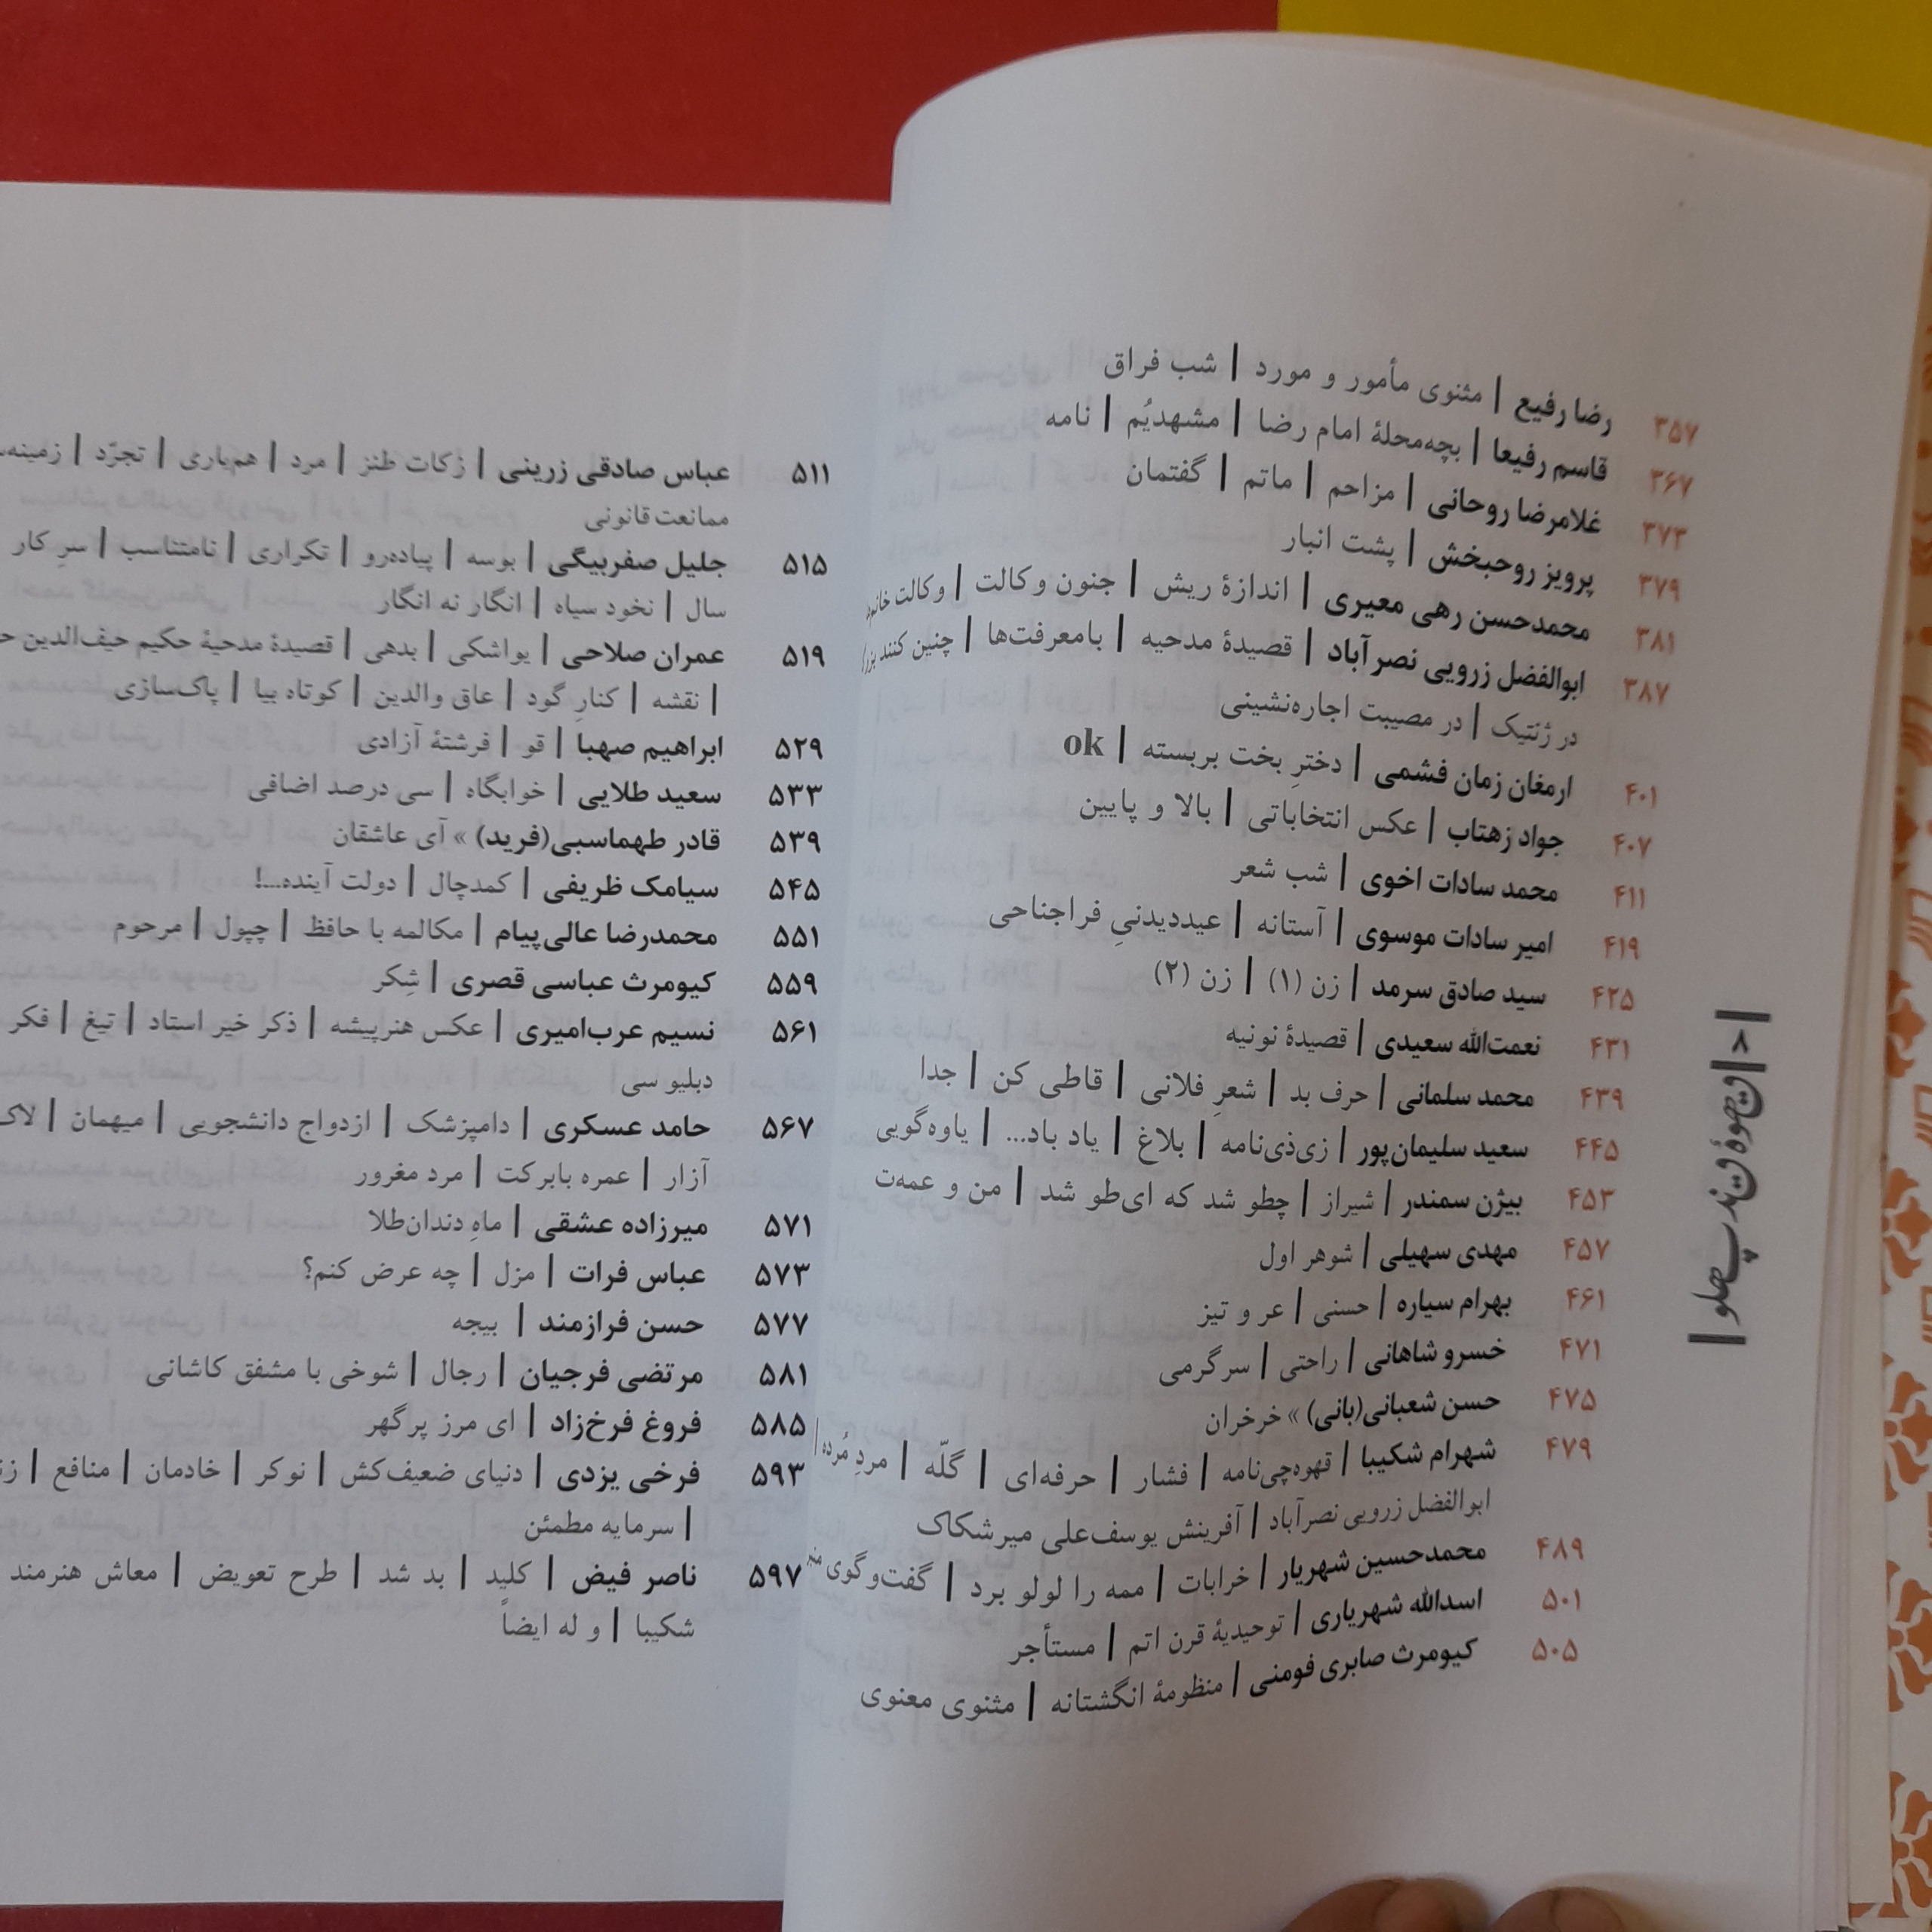 ۳۵۷ رضا رفیع | مثنوی مأمور و مورد | شب فراق
۳۶۷ قاسم رفیعا | بچه‌محلهٔ امام رضا | مشهدیُم | نامه
۳۷۳ غلامرضا روحانی | مزاحم | ماتم | گفتمان
۳۷۹ پرویز روحبخش | پشت انبار
۳۸۱ محمدحسن رهی معیری | اندازهٔ ریش | جنون وکالت | وکالت
۳۸۷ ابوالفضل زرویی نصرآباد | قصیدهٔ مدحیه | بامعرفت‌ها | چنین کنند
در ژنتیک | در مصیبت اجاره‌نشینی
۴۰۱ ارمغان زمان فشمی | دخترِ بخت بربسته | ok
۴۰۷ جواد زهتاب | عکس انتخاباتی | بالا و پایین
۴۱۱ محمد سادات اخوی | شب شعر
۴۱۹ امیر سادات موسوی | آستانه | عیددیدنیِ فراجناحی
۴۲۵ سید صادق سرمد | زن (۱) | زن (۲)
۴۳۱ نعمت‌الله سعیدی | قصیدهٔ نونیه
۴۳۹ محمد سلمانی | حرف بد | شعرِ فلانی | قاطی کن | جدا
۴۴۵ سعید سلیمان‌پور | زی‌ذی‌نامه | بلاغ | یاد باد... | یاوه‌گویی
۴۵۳ بیژن سمندر | شیراز | چطو شد که ای‌طو شد | من و عمه‌ت
۴۵۷ مهدی سهیلی | شوهر اول
۴۶۱ بهرام سیاره | حسنی | عر و تیز
۴۷۱ خسرو شاهانی | راحتی | سرگرمی
۴۷۵ حسن شعبانی(بانی) » خرخران
۴۷۹ شهرام شکیبا | قهوه‌چی‌نامه | فشار | حرفه‌ای | گلّه | مردِ مُرده |
ابوالفضل زرویی نصرآباد | آفرینش یوسف‌علی میرشکاک
۴۸۹ محمدحسین شهریار | خرابات | ممه را لولو برد | گفت‌وگوی
۵۰۱ اسدالله شهریاری | توحیدیهٔ قرن اتم | مستأجر
۵۰۵ کیومرث صابری فومنی | منظومهٔ انگشتانه | مثنوی معنوی
۵۱۱ عباس صادقی زرینی | زکات طنز | مرد | هم‌یاری | تجرّد |
ممانعت قانونی
۵۱۵ جلیل صفربیگی | بوسه | پیاده‌رو | تکراری | نامتناسب | سرِ کار
سال | نخود سیاه | انگار نه انگار
۵۱۹ عمران صلاحی | یواشکی | بدهی | قصیدهٔ مدحیهٔ حکیم حیف‌الدین
| نقشه | کنارِ گود | عاق والدین | کوتاه بیا | پاک‌سازی
۵۲۹ ابراهیم صهبا | قو | فرشتهٔ آزادی
۵۳۳ سعید طلایی | خوابگاه | سی درصد اضافی
۵۳۹ قادر طهماسبی(فرید) » آی عاشقان
۵۴۵ سیامک ظریفی | کمدچال | دولت آینده...!
۵۵۱ محمدرضا عالی‌پیام | مکالمه با حافظ | چپول | مرحوم
۵۵۹ کیومرث عباسی قصری | شِکر
۵۶۱ نسیم عرب‌امیری | عکس هنرپیشه | ذکر خیر استاد | تیغ | فکر
دبلیو سی
۵۶۷ حامد عسکری | دامپزشک | ازدواج دانشجویی | میهمان |
آزار | عمره بابرکت | مرد مغرور
۵۷۱ میرزاده عشقی | ماهِ دندان‌طلا
۵۷۳ عباس فرات | مزل | چه عرض کنم؟
۵۷۷ حسن فرازمند | بیجه
۵۸۱ مرتضی فرجیان | رجال | شوخی با مشفق کاشانی
۵۸۵ فروغ فرخ‌زاد | ای مرز پرگهر
۵۹۳ فرخی یزدی | دنیای ضعیف‌کش | نوکر | خادمان | منافع |
| سرمایه مطمئن
۵۹۷ ناصر فیض | کلید | بد شد | طرح تعویض | معاش هنرمند
شکیبا | و له ایضاً